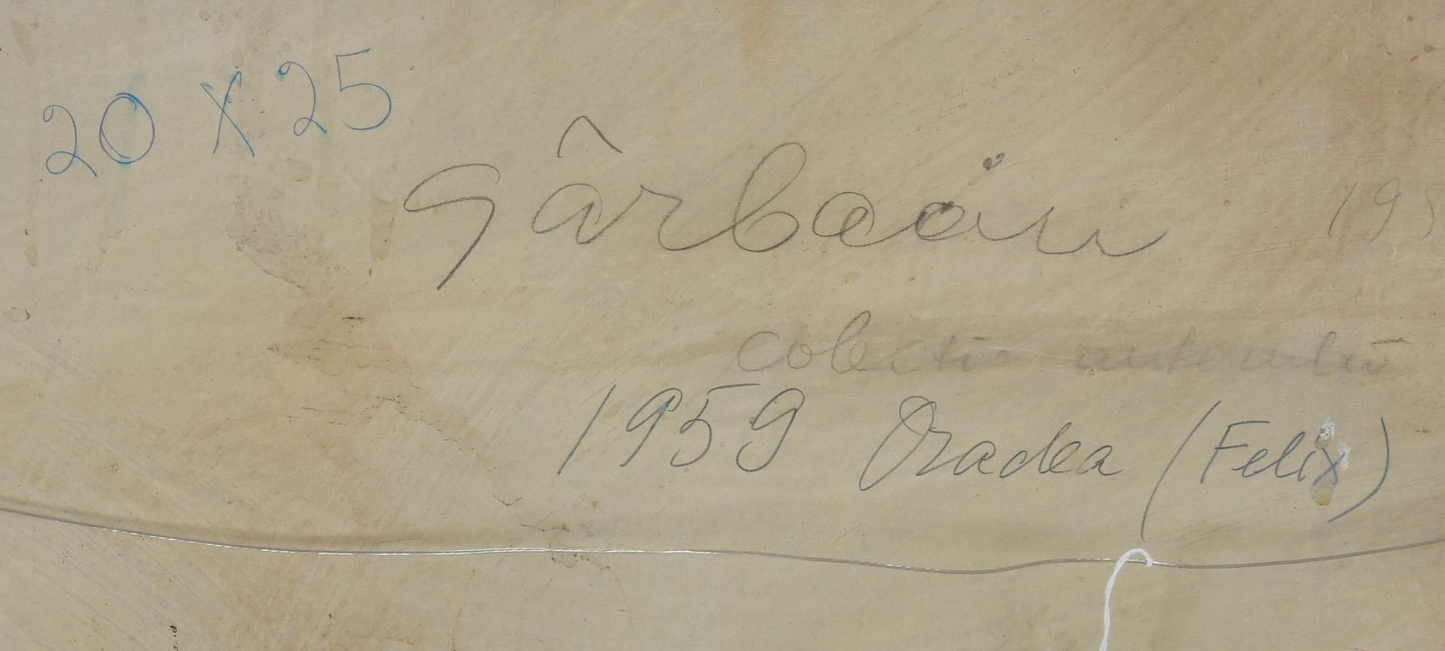 20 X 25
Gârbaciu
195
colectia autorului
1959 Oradea (Felix)